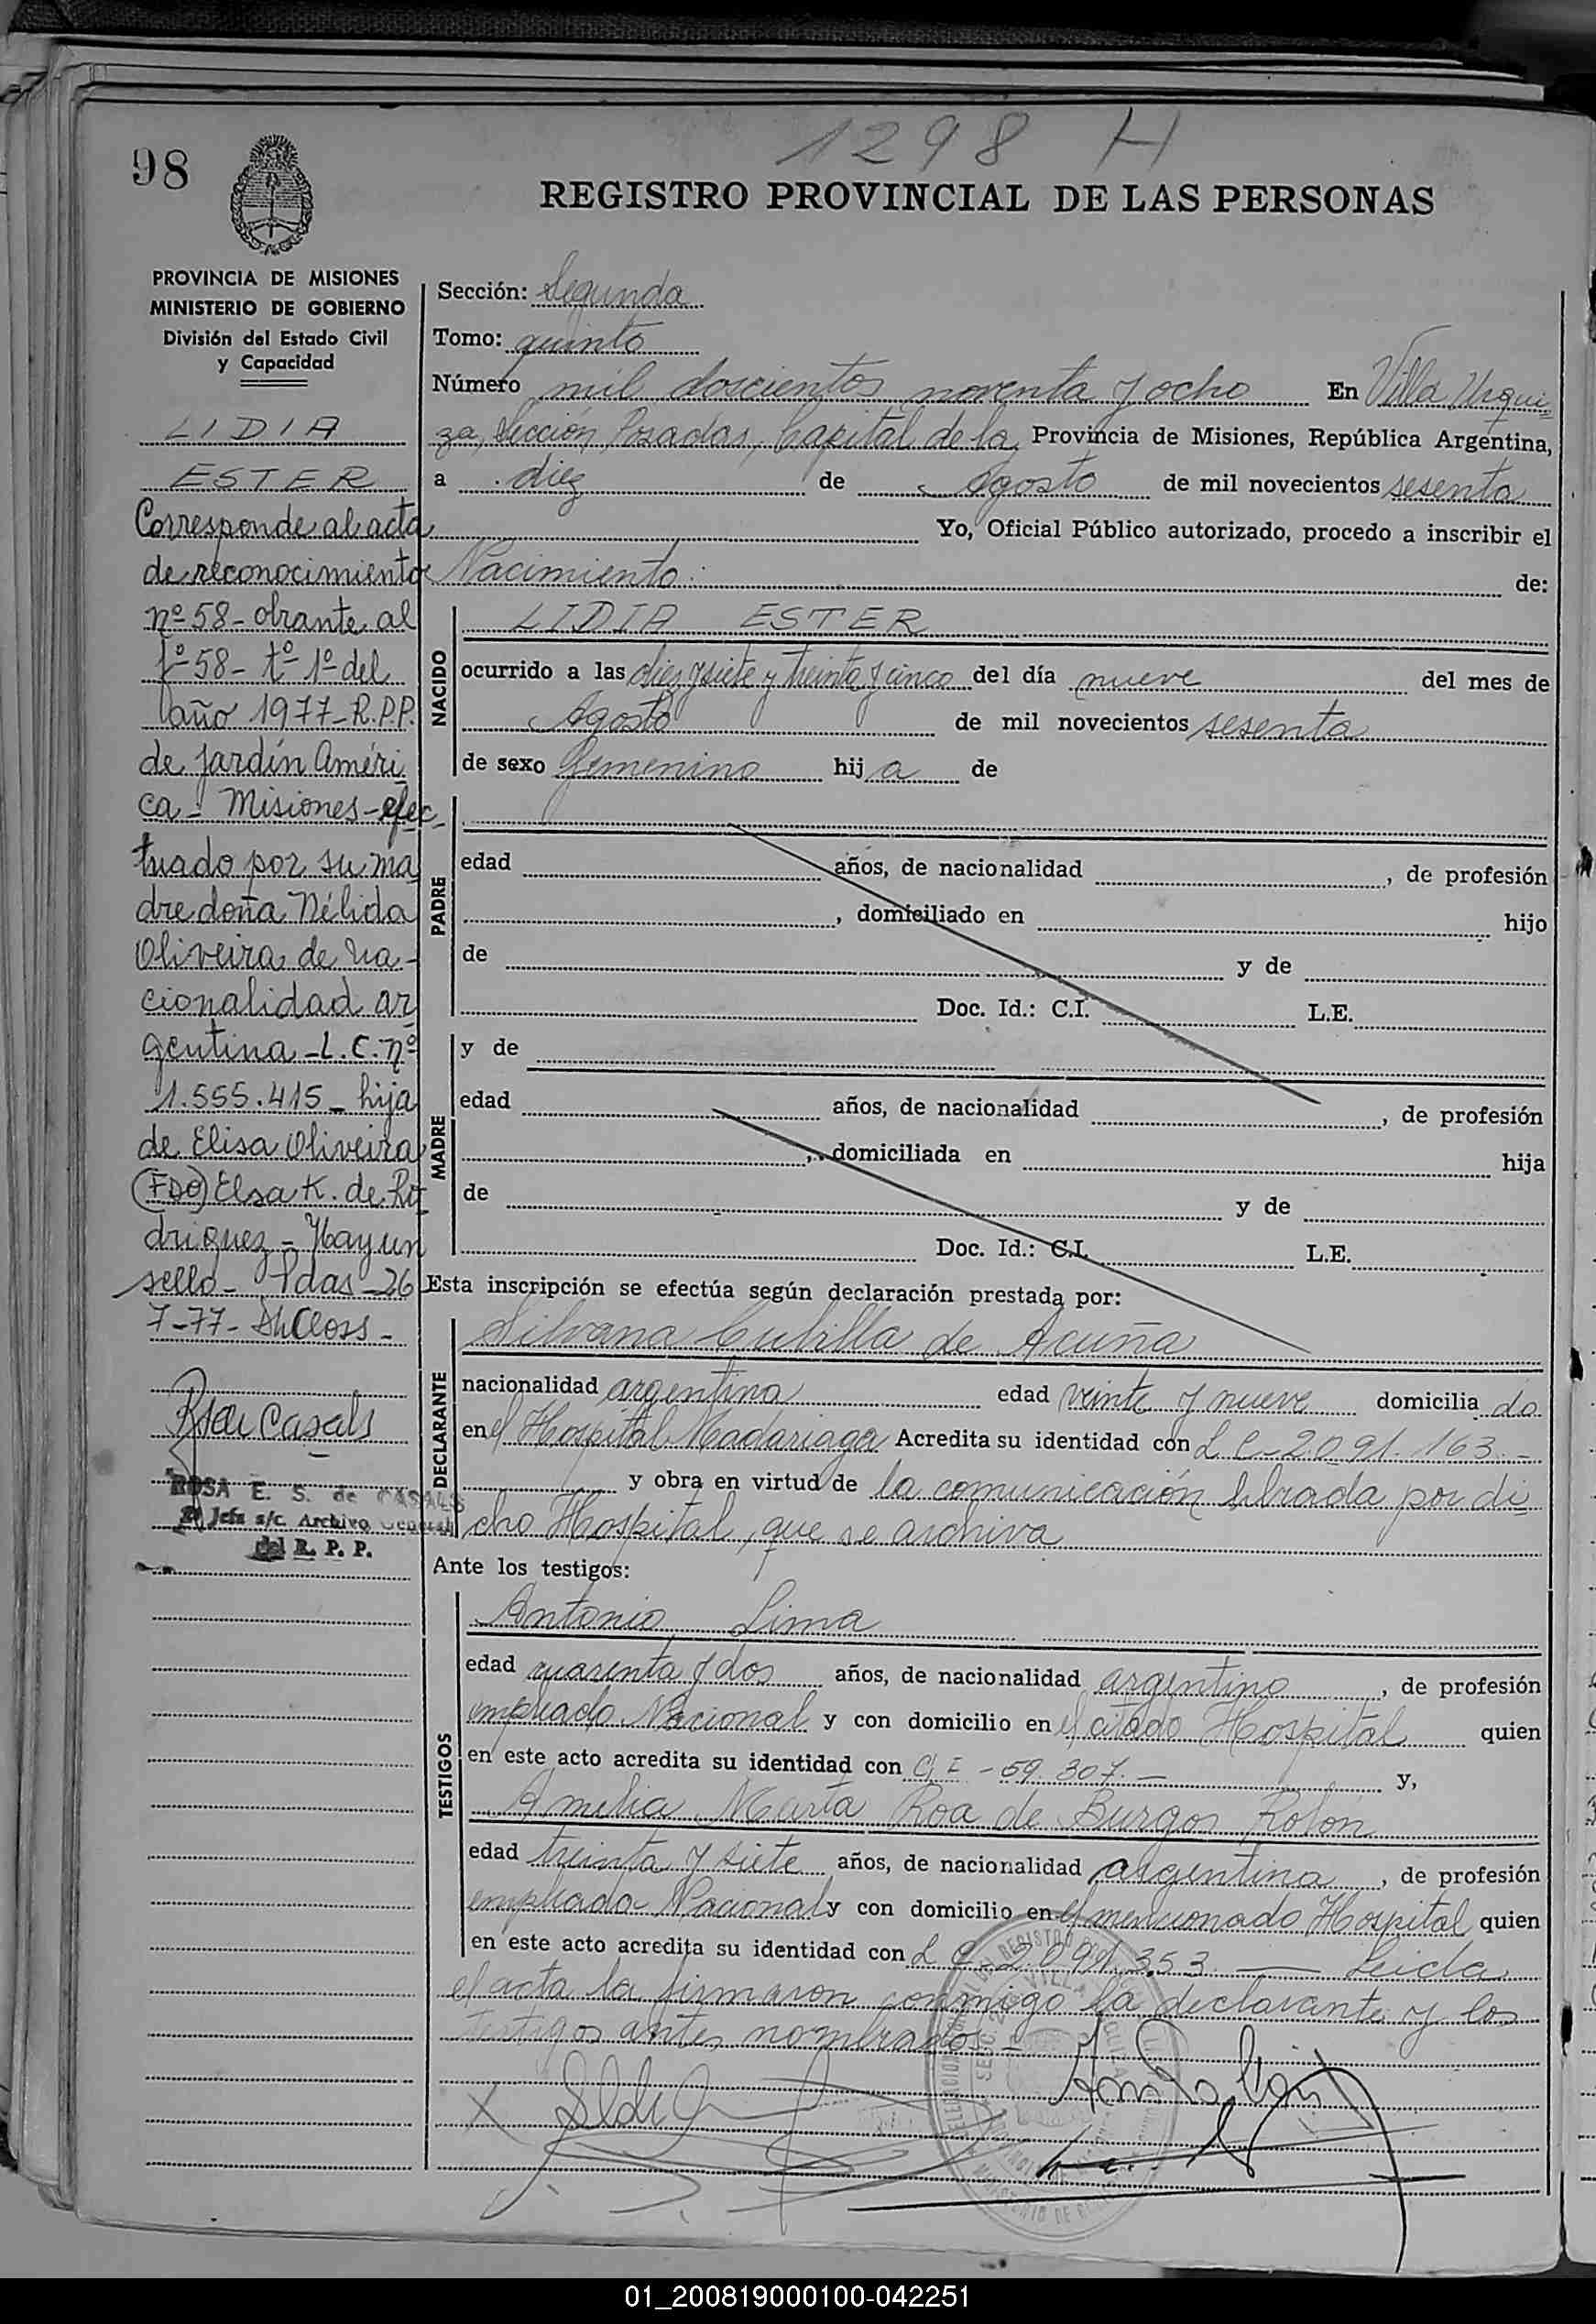 1298 H
98
REGISTRO PROVINCIAL DE LAS PERSONAS
PROVINCIA DE MISIONES
MINISTERIO DE GOBIERNO
División del Estado Civil
y Capacidad
LIDIA
ESTER
Corresponde al acta
de reconocimiento
nº 58 - obrante al
fº 58 - tº 1º del
año 1977 - R.P.P.
de Jardín Améri
ca - Misiones - efec
tuado por su ma
dre doña Nélida
Oliveira de na-
cionalidad ar
gentina - L.C. nº
1.555.415 - hija
de Elisa Oliveira
(FDO) Elsa K. de Ro
driguez - Hay un
sello - Pdas - 26
7-77-
Casals
ROSA E. S. de CASALS
Jefa s/c. Archivo General
del R. P. P.
Sección: Segunda
Tomo: quinto
Número mil doscientos noventa y ocho En Villa Urqui
za, Sección Posadas, Capital de la Provincia de Misiones, República Argentina,
a diez de Agosto de mil novecientos sesenta
Yo, Oficial Público autorizado, procedo a inscribir el
Nacimiento de:
NACIDO
LIDIA ESTER
ocurrido a las diez y siete y treinta y cinco del día nueve del mes de
Agosto de mil novecientos sesenta
de sexo femenino hija de
PADRE
edad años, de nacionalidad , de profesión
, domiciliado en hijo
de y de
Doc. Id.: C.I. L.E.
MADRE
y de
edad años, de nacionalidad , de profesión
, domiciliada en hija
de y de
Doc. Id.: C.I. L.E.
Esta inscripción se efectúa según declaración prestada por:
DECLARANTE
Silvana Cubilla de Acuña
nacionalidad argentina edad veinte y nueve domiciliada do
en el Hospital Madariaga Acredita su identidad con L C - 2.091.163 -
y obra en virtud de la comunicación librada por di
cho Hospital, que se archiva
Ante los testigos:
TESTIGOS
Antonio Lima
edad cuarenta y dos años, de nacionalidad argentino , de profesión
empleado Nacional y con domicilio en el citado Hospital quien
en este acto acredita su identidad con - 59.307 - y,
Amelia Marta Roa de Burgos Rolon
edad treinta y siete años, de nacionalidad argentina , de profesión
empleada Nacional y con domicilio en el mencionado Hospital quien
en este acto acredita su identidad con L C - 2.091.353 - Leida
el acta la firmaron conmigo la declarante y los
testigos antes nombrados -
01_200819000100-042251